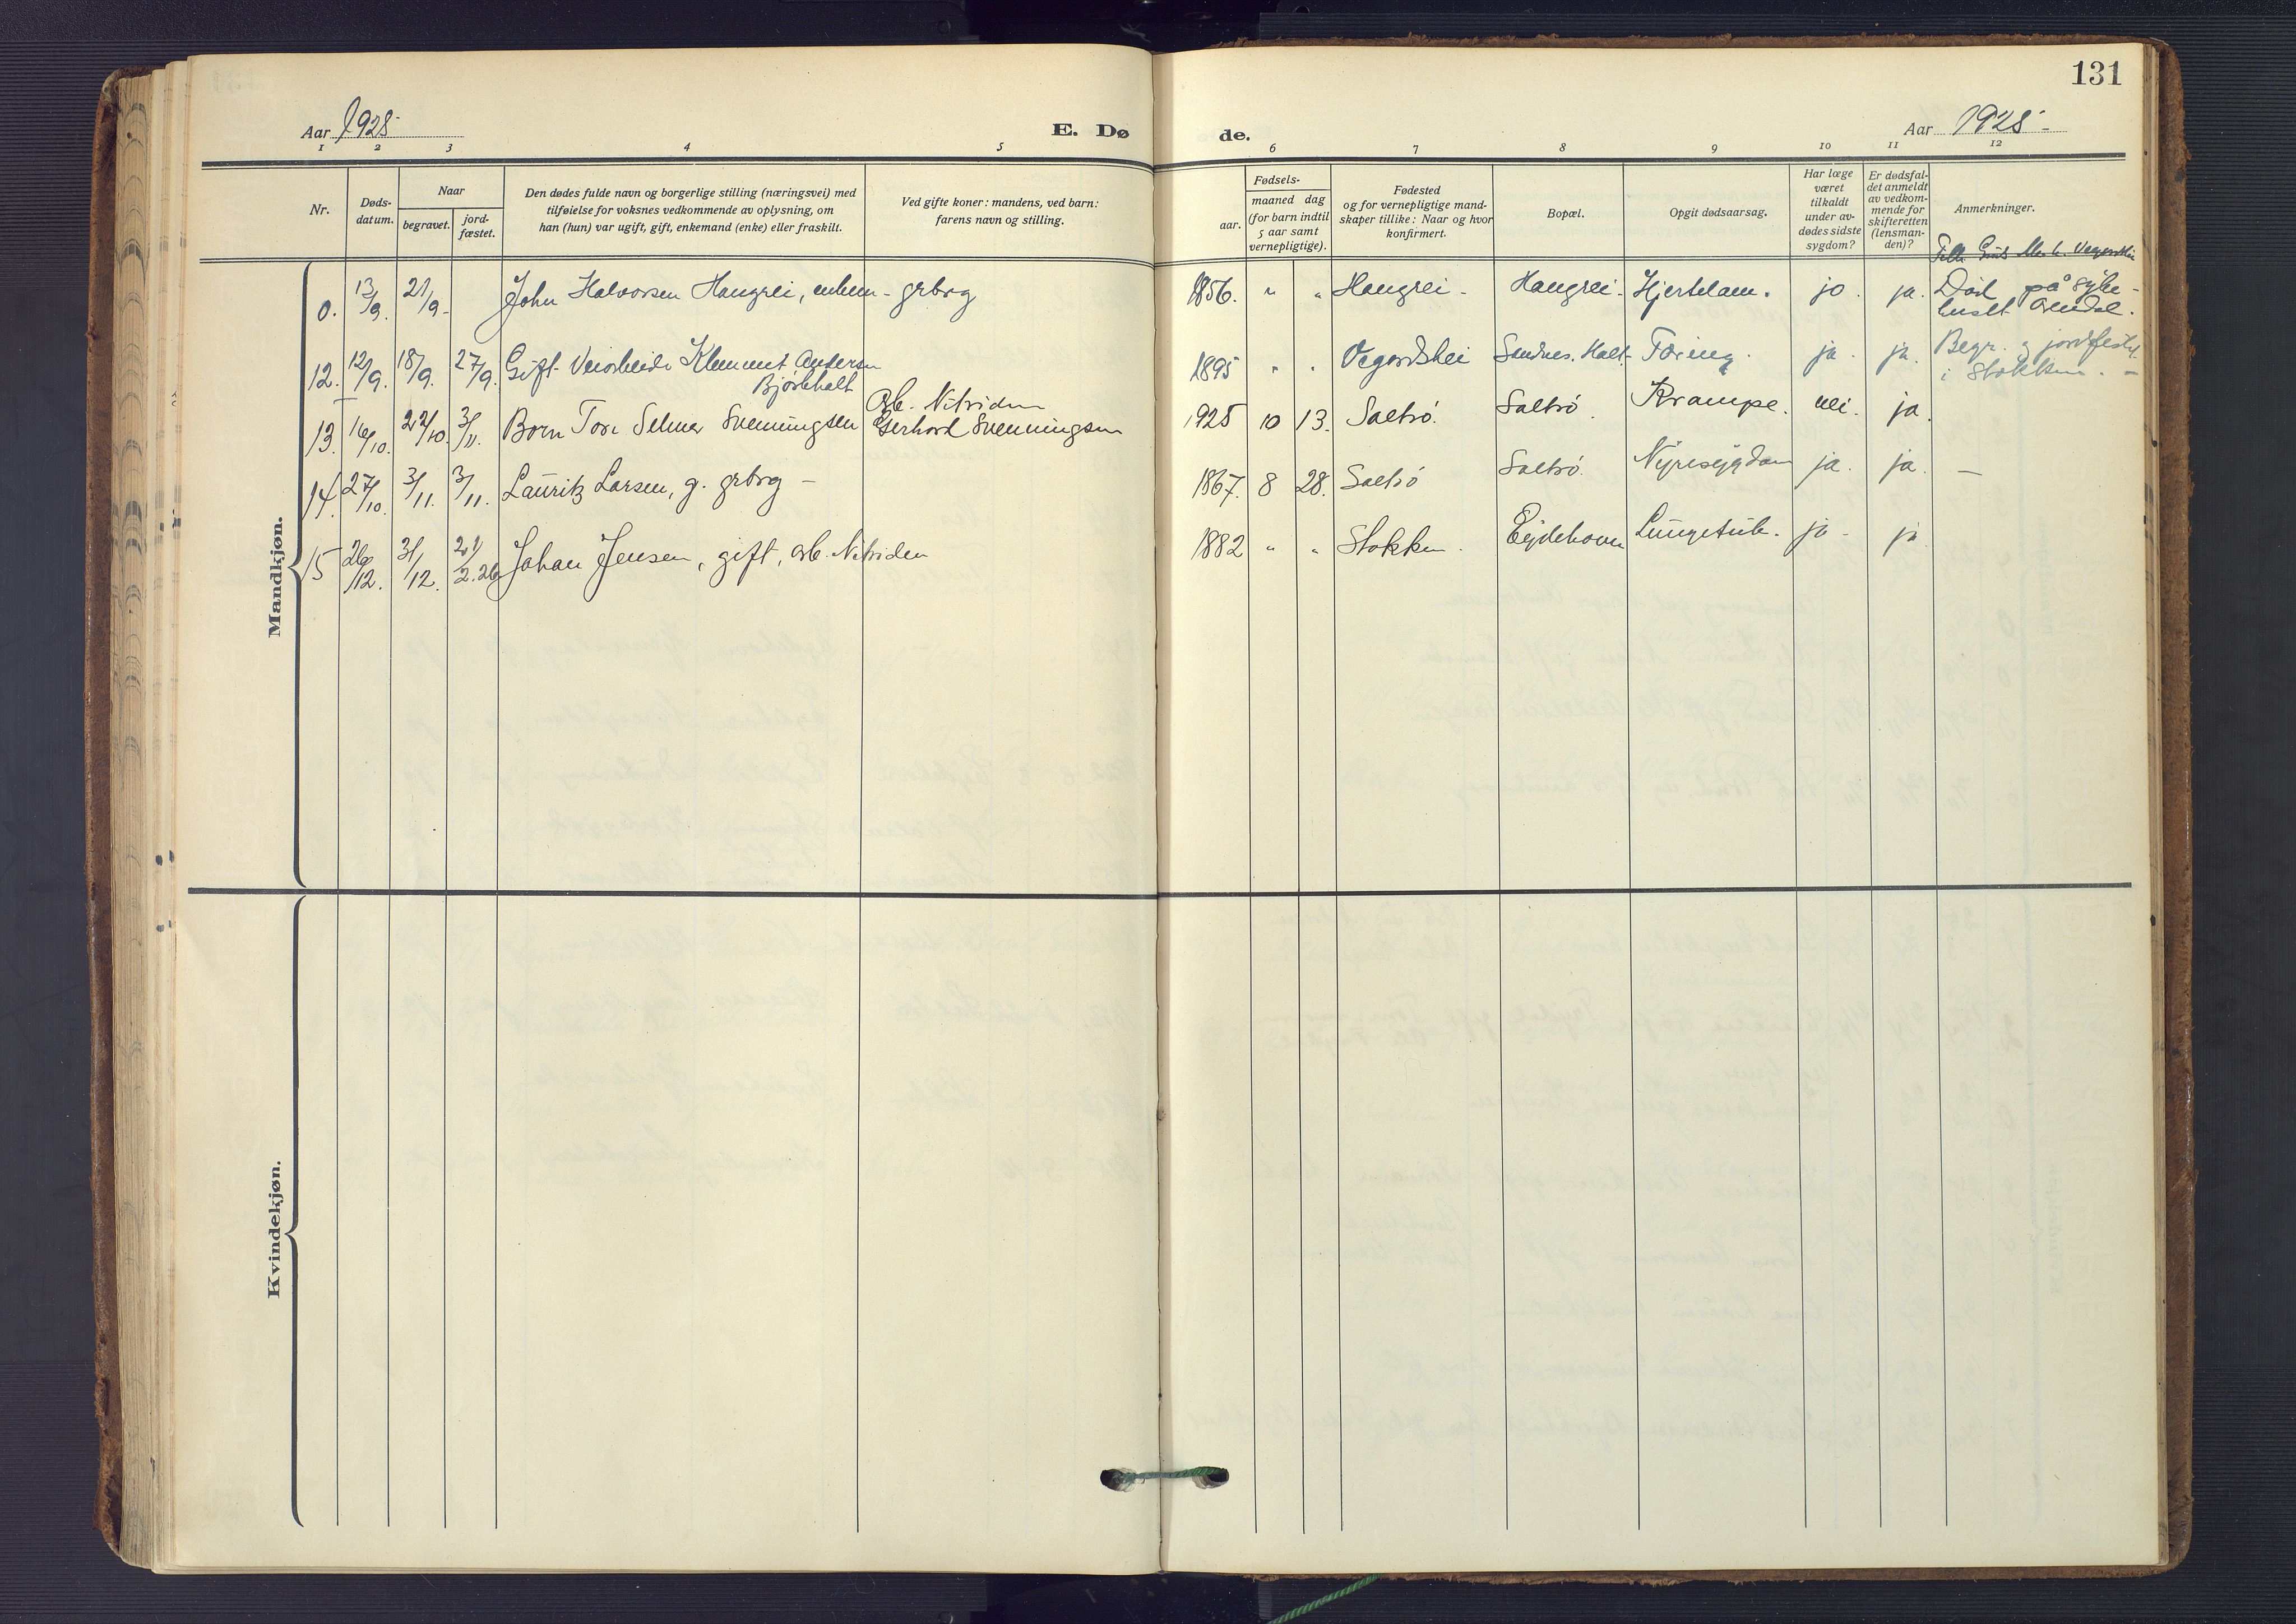 131
Aar 1925
E. Dø
de.
Aar 1925 -
1 2 3 4 5 6 7 8 9 10 11 12
Nr.
Døds-
datum.
Naar
begravet.
jord-
fæstet.
Den dødes fulde navn og borgerlige stilling (næringsvei) med
tilføielse for voksnes vedkommende av oplysning, om
han (hun) var ugift, gift, enkemand (enke) eller fraskilt.
Ved gifte koner: mandens, ved barn:
farens navn og stilling.
Fødsels-
aar.
maaned dag
(for barn indtil
5 aar samt
vernepligtige).
Fødested
og for vernepligtige mand-
skaper tillike: Naar og hvor
konfirmert.
Bopæl.
Opgit dødsaarsag.
Har læge
været
tilkaldt
under av-
dødes sidste
sygdom?
Er dødsfal-
det anmeldt
av vedkom-
mende for
skifteretten
(lensman-
den)?
Anmerkninger.
Mandkjøn.
0. 13/9. 21/9 - John Halvorsen Haugrei, enkem - grbrg 1856. " " Haugrei - Haugrei - Hjertelam. jo. ja. Død på syke-
huset Arendal.
12. 12/9. 18/9. 27/9. Gift Veiarbeide Klemmet Andersen
Bjørkholt 1895 " . Vegårdshei Sundnes. Holt - Tæring. ja. ja. Begr. og jordfestet
i Stokken. -
13. 16/10. 22/10. 3/11. Barn Tore Selmer Svenningsen
Arb. Nitriden
Gerhard Svenningsen 1925 10 13. Saltrö. Saltrö. Krampe. nei. ja.
14. 27/10. 3/11. 3/11. Lauritz Larsen, g. grbrg - 1867. 8 28. Saltrö Saltrö. Nyresygdom ja. ja. -
15 26/12. 31/12. 21/2.26 Johan Jensen, gift, arb. Nitriden 1882 " " Stokken. Eydehavn Lungetub. ja - ja
Kvindekjøn.